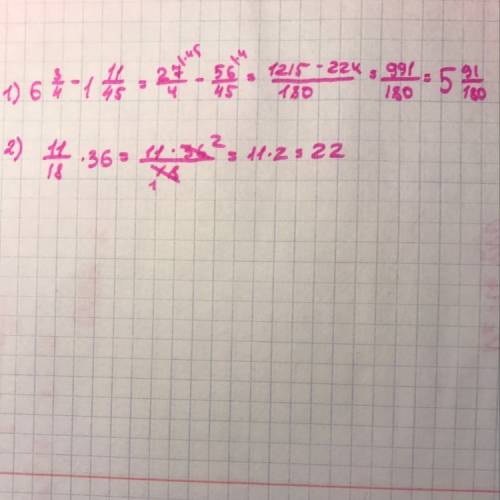 1) 6 3/4 - 1 11/45 = 27/4 ^(1·45) - 56/45 ^(1·4) = (1215 - 224)/180 = 991/180 = 5 91/180
2) 11/18 · 36 = (11 · 36 2)/(18 1) = 11 · 2 = 22